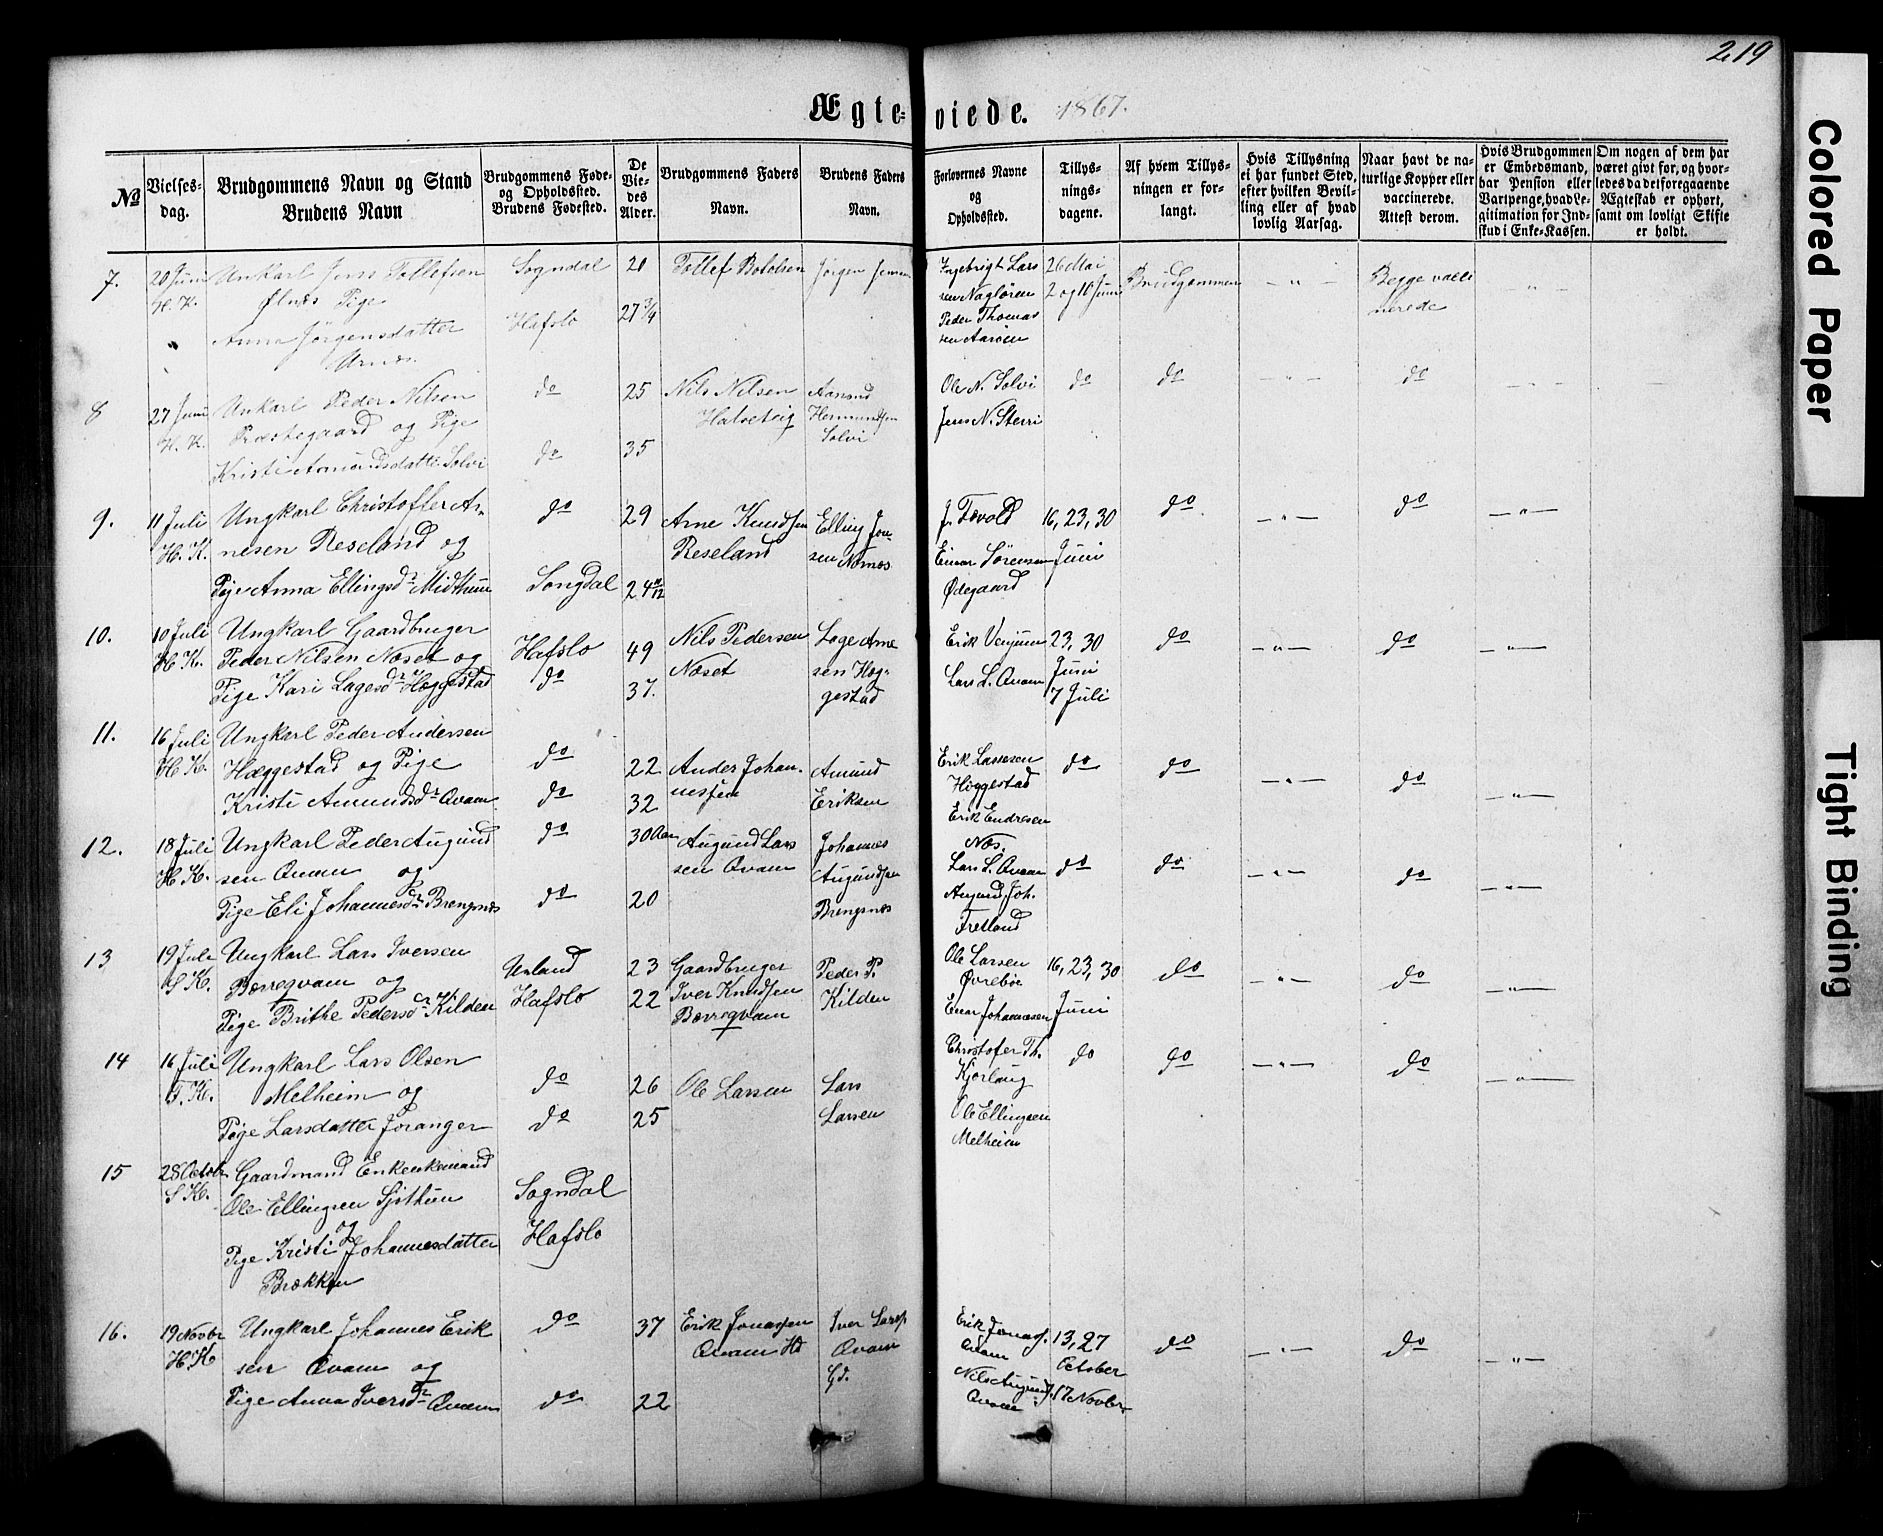 219
Ægte- viede. 1867.
No
Vielses-
dag.
Brudgommens Navn og Stand
Brudens Navn
Brudgommens Føde-
og Opholdssted.
Brudens Fødested.
De
Vie-
des
Alder.
Brudgommens Faders
Navn.
Brudens Faders
Navn.
Forlovernes Navne
og
Opholdssted.
Tillys-
nings-
dagene.
Af hvem Tillys-
ningen er for-
langt.
Hvis Tillysning
ei har fundet Sted,
efter hvilken Bevil-
ling eller af hvad
lovlig Aarsag.
Naar havt de na-
turlige Kopper eller
vaccinerede.
Attest derom.
Hvis Brudgommen
er Embedsmand,
har Pension eller
Vartpenge, hvad Le-
gitimation for Ind-
skud i Enke-Kassen.
Om nogen af dem har
været givt før, og hvor-
ledes da det foregaaende
Ægteskab er ophørt,
samt om lovligt Skifte
er holdt.
7.
20 Juni
H. K.
Unkarl Jens Tollefsen
Ølnæs Pige
Anna Jørgensdatter
Urnæs
Sogndal
Hafslo
21
27 3/4
Tollef Botolsen
Jørgen Jensen
Ingebrigt Lars
sen Nagløren
Peder Thomas
sen Aarøen
26 Mai
2 og 10 Juni
Brudgommen
- " -
Begge vacci
nerede
- " -
8
27 Juni
H. K.
Unkarl Peder Nilsen
Præstegaard og Pige
Kristi Amundsdatter Solvi
do
do
25
35
Nils Nilsen
Halseteig
Aamund
Hermundsen
Solvi
Ole N. Solvi
Jens N. Sterri
do
do
- " -
do
- " -
9.
11 Juli
H. K.
Ungkarl Christoffer Ar-
nesen Reseland og
Pige Anna Ellingsdr Midthun
do
Songdal
29
24
Arne Knudsen
Reseland
Elling Jon-
sen Nornes
J. Tævold
Einar Sørensen
Ødegaard
16, 23, 30
Juni
do
- " -
do
- " -
10.
10 Juli
H. K.
Ungkarl Gaardbruger
Peder Nilsen Næset og
Pige Kari Lagesdr Hæggestad
Hafslo
do
49
37.
Nils Pedersen
Næset
Lage Arne
sen Hæg-
gestad
Erik Venjum
Lars L. Qvam
23, 30
Juni
7 Juli
do
- " -
do
- " -
11.
16 Juli
H. K.
Ungkarl Peder Andersen
Hæggestad og Pige
Kristi Amundsdr Qvam
do
do
22
32
Ander Johan-
nessen
Amund
Eriksen
Erik Lassesen
Höggestad
Erik Endresen
Næs.
do
do
- " -
do
- " -
12.
18 Juli
H. K.
Ungkarl Peder Augund
sen Qvam og
Pige Eli Johannesdr Brengsnes
do
do
30 Aar
20
Augund Lars
sen Qvam
Johannes
Augundsen
Brengsnes
Lars L. Qvam
Augund Joh.
Fretland
do
do
- " -
do
- " -
13
19 Juli
S K.
Ungkarl Lars Iversen
Bærreqvam og
Pige Brithe Pedersdr Kilden
Urland
Hafslo
23
22
Gaardbruger
Iver Knudsen
Bærreqvam
Peder P.
Kilden
Ole Larsen
Øvrebøe
Einar Johannesen
16, 23, 30
Juni
do
- " -
do
- " -
14
16 Juli
F. K.
Ungkarl Lars Olsen
Melheim og
Pige Larsdatter Joranger
do
do
26
25
Ole Larsen
Lars
Larsen
Christofer Th.
Kjørlaug
Ole Ellingsen
Melheim
do
do
- " -
do
- " -
15
28 Octobr
S K.
Gaardmand Enkemand
Ole Ellingsen Sjøthun
og
Pige Kristi Johannesdatter
Brækken
Sogndal
Hafslo
16.
19 Novbr
H. K
Ungkarl Johannes Erik
sen Qvam og
Pige Anna Iversdr Qvam
do
do
37
22
Erik Jonassen
Qvam Hd
Iver Larss.
Qvam
Gd.
Erik Jonass.
Qvam
Nils Augund.
Qvam
13, 27
October
17 Novbr
do
- " -
do
- " -
Colored Paper
Tight Binding